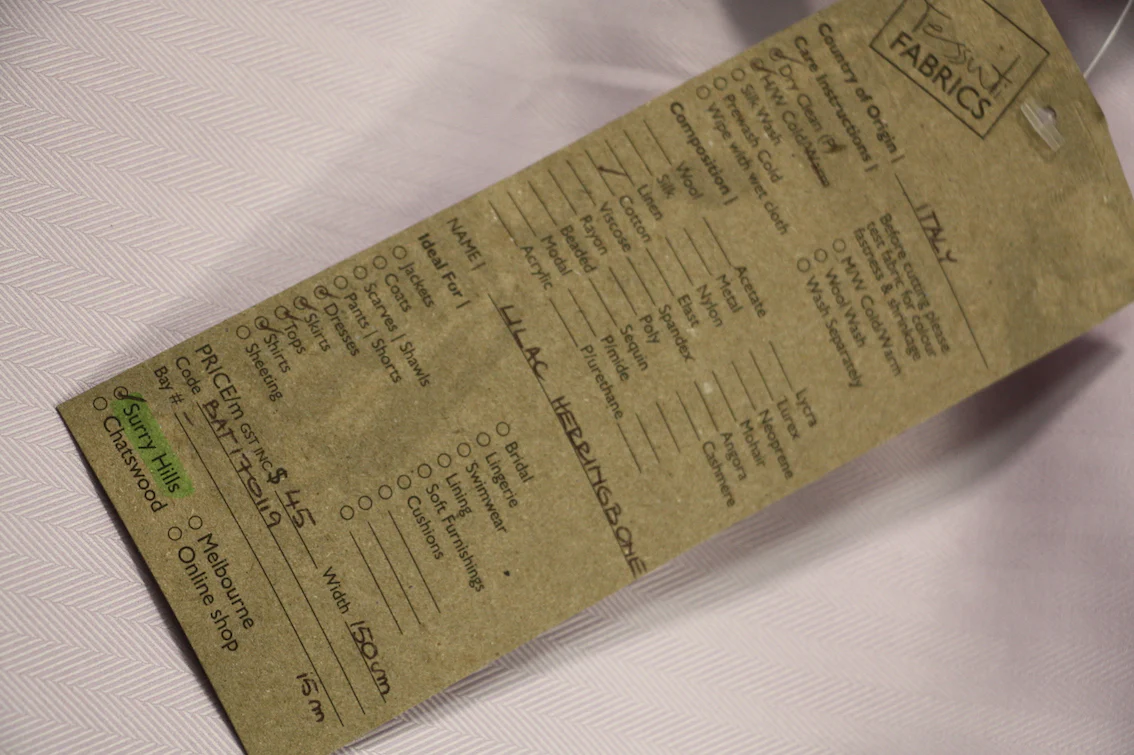 Tessuti
FABRICS
Country of Origin | ITALY
Care Instructions |
Dry Clean (P)
H/W Cold/Warm
Silk Wash
Prewash Cold
Wipe with wet cloth
Before cutting please
test fabric for colour
fastness & shrinkage
M/W Cold/Warm
Wool Wash
Wash Separately
Composition |
Wool
Silk
Linen
Cotton
Viscose
Rayon
Beaded
Modal
Acrylic
Acetate
Metal
Nylon
Elast
Spandex
Poly
Sequin
P/mide
P/urethane
Lycra
Lurex
Neoprene
Mohair
Angora
Cashmere
NAME | LILAC HERRINGBONE
Ideal For |
Jackets
Coats
Scarves | Shawls
Pants | Shorts
Dresses
Skirts
Tops
Shirts
Sheeting
Bridal
Lingerie
Swimwear
Lining
Soft Furnishings
Cushions
PRICE/m GST INC $ 45 Width 150cm
Code BAT170119
Bay # - 15m
Surry Hills
Chatswood
Melbourne
Online shop